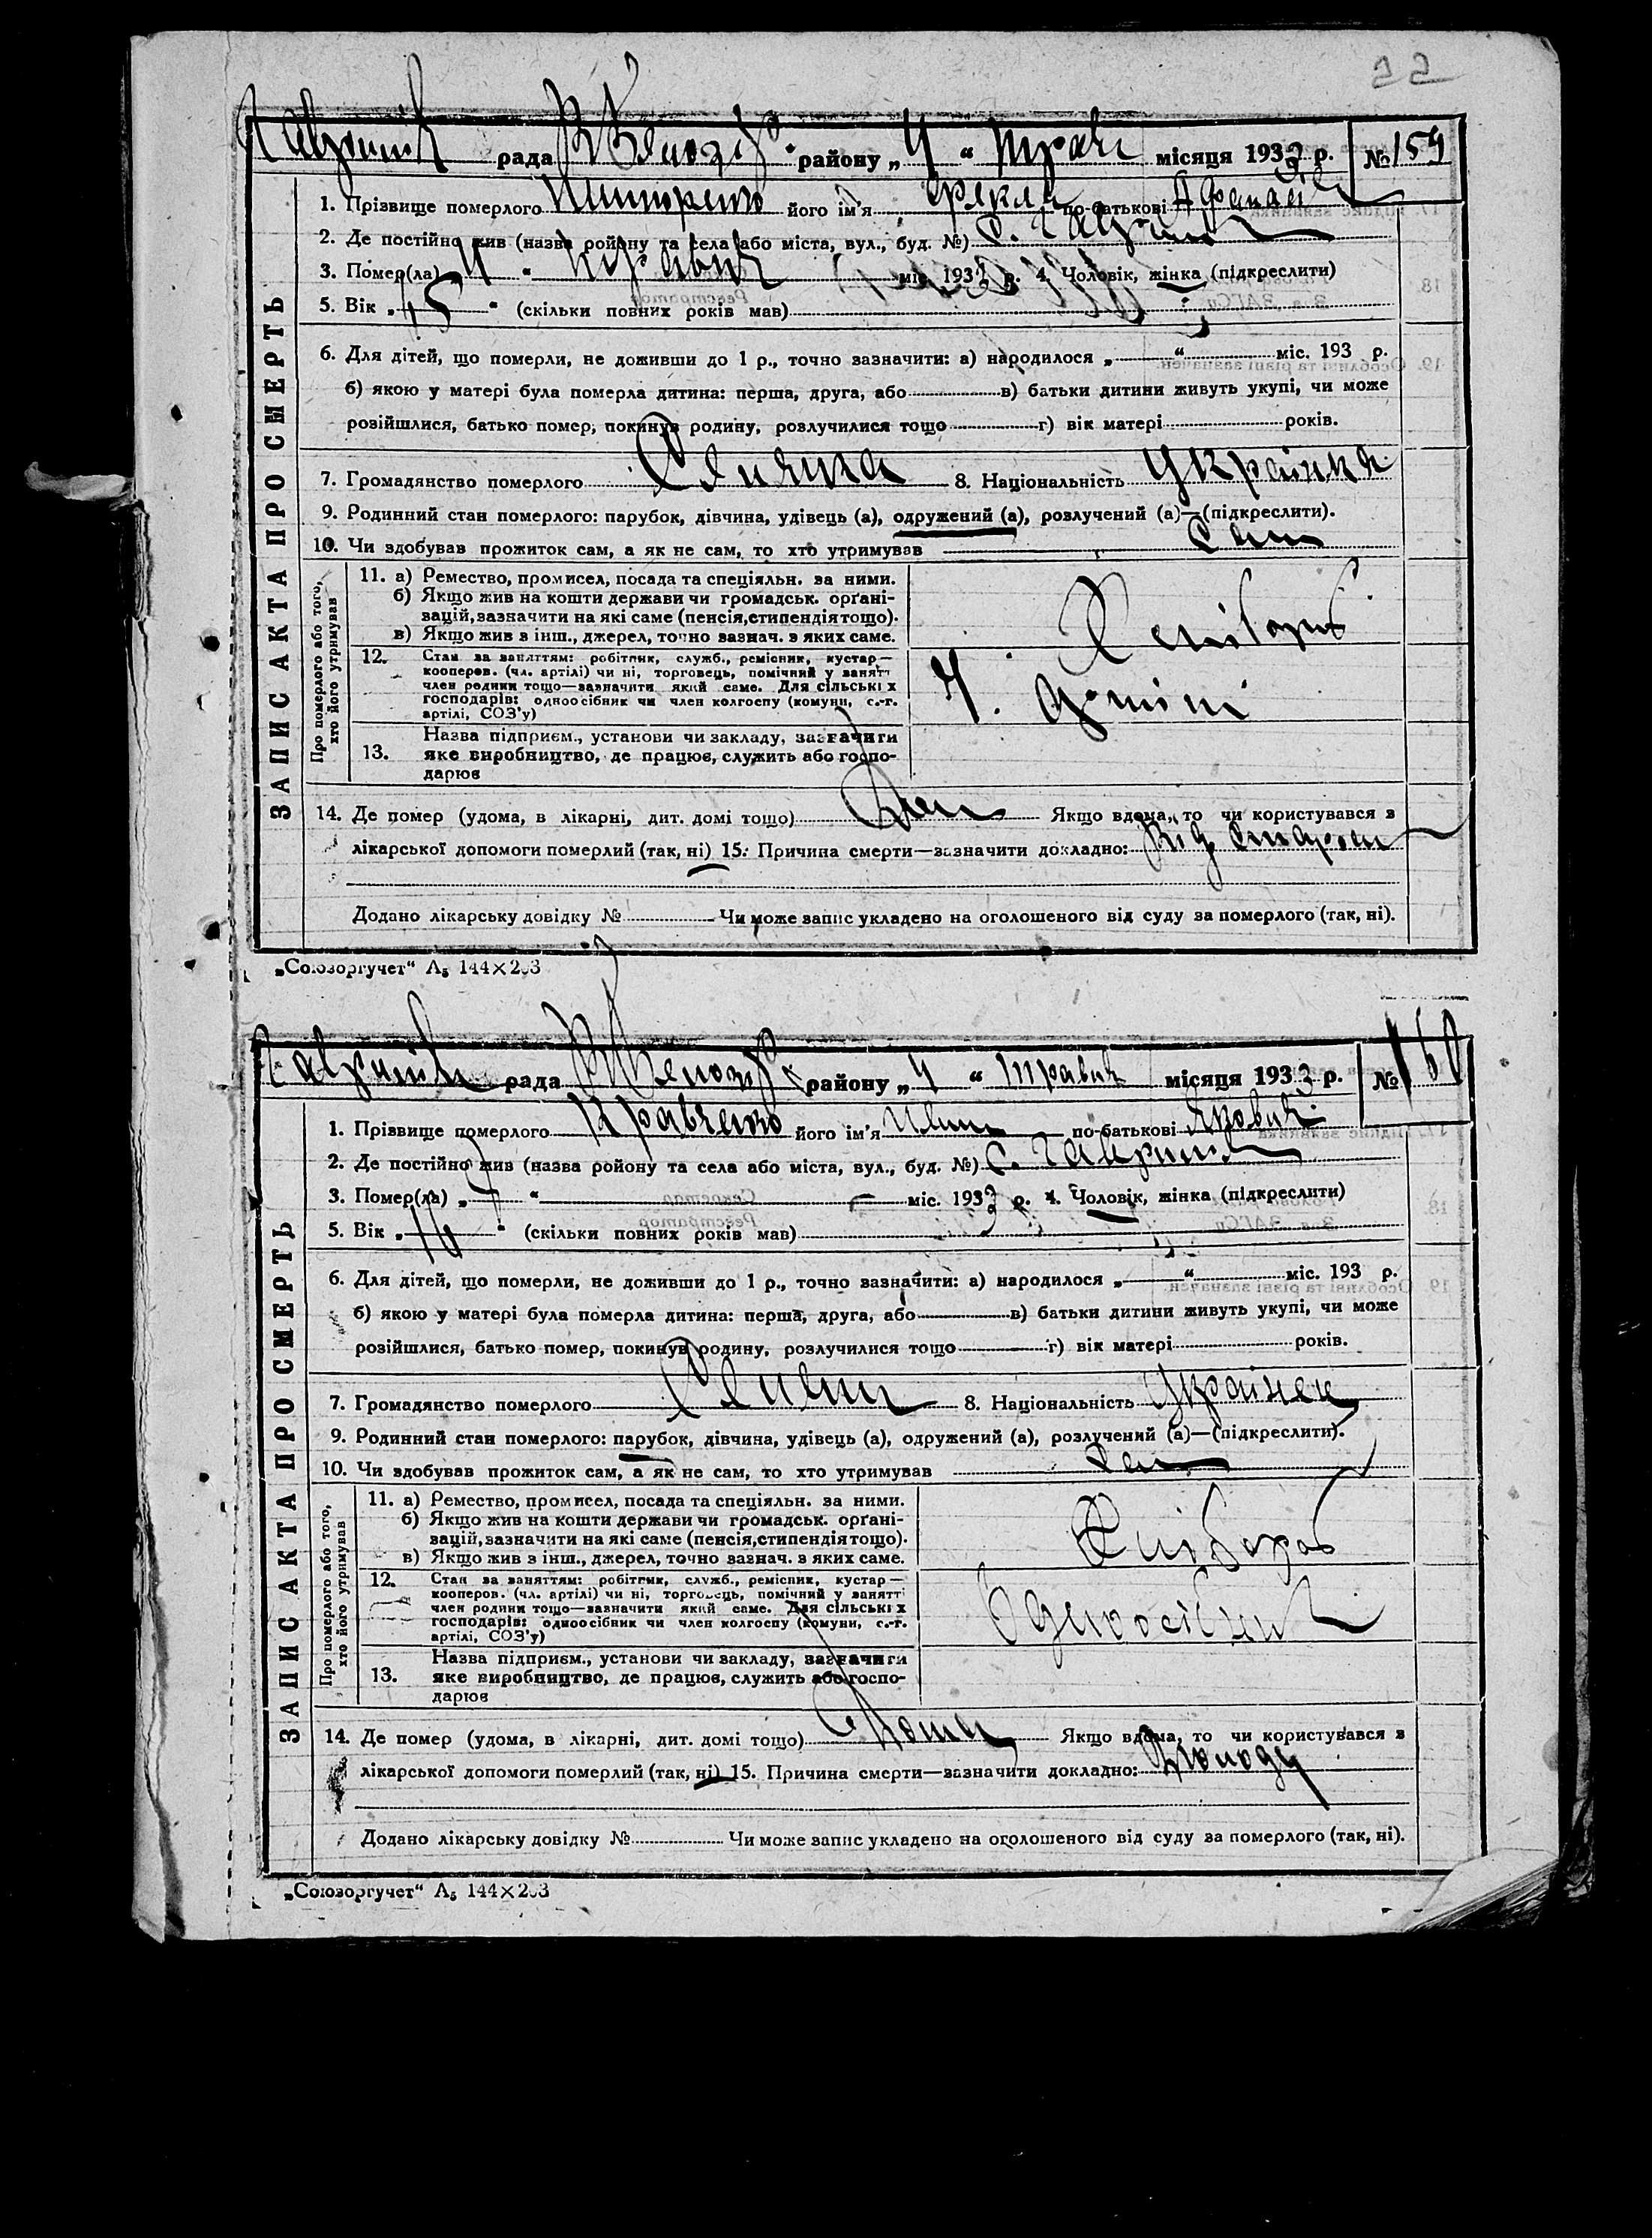 22
рада районy „ 4 “ Трав місяця 1933 р. №159
ЗАПИС АКТА ПРО СМЕРТЬ
1. Прізвище померлого його ім'я Фекла по-батькові
2. Де постійно жив (назва ройону та села або міста, вул., буд. №) с. Гаврилівк
3. Помер(ла) „ 4 “ травня міс. 1933 р. 4. Чоловік, жінка (підкреслити)
5. Вік „ 45 “ (скільки повних років мав)
6. Для дітей, що померли, не доживши до 1 р., точно зазначити: а) народилося „ “ міс. 193 р.
б) якою у матері була померла дитина: перша, друга, або в) батьки дитини живуть укупі, чи може
розійшлися, батько помер, покинув родину, розлучилися тощо г) вік матері років.
7. Громадянство померлого Селянка 8. Національність Українка
9. Родинний стан померлого: парубок, дівчина, удівець (а), одружений (а), розлучений (а)—(підкреслити).
10. Чи здобував прожиток сам, а як не сам, то хто утримував Сам
Про померлого або того, хто його утримував
11. а) Ремество, промисел, посада та спеціяльн. за ними.
б) Якщо жив на кошти держави чи громадськ. орґані-
зацій, зазначити на які саме (пенсія, стипендія тощо).
в) Якщо жив з інш., джерел, точно зазнач. з яких саме.
Хлібороб
12. Стан за заняттям: робітник, служб., ремісник, кустар—
кооперов. (чл. артілі) чи ні, торговець, помічний у занятт
член родини тощо—зазначити який саме. Для сільських
господарів: одноосібник чи член колгоспу (комуни, с.-г.
артілі, СОЗ'у)
Ч. артілі
13. Назва підприєм., установи чи закладу, зазначити
яке виробництво, де працює, служить або госпо-
дарює
14. Де помер (удома, в лікарні, дит. домі тощо) Якщо вдома, то чи користувався з
лікарської допомоги померлий (так, ні) 15. Причина смерти—зазначити докладно: Від старости
Додано лікарську довідку № Чи може запис укладено на оголошеного від суду за померлого (так, ні).
„Союзоргучет“ А₅ 144×203
рада району „ 4 “ травня місяця 1933 р. № 160
ЗАПИС АКТА ПРО СМЕРТЬ
1. Прізвище померлого Кравченко його ім'я Иван по-батькові Якович
2. Де постійно жив (назва ройону та села або міста, вул., буд. №) с. Гаврилівк
3. Помер(ла) „ 4 “ міс. 1933 р. 4. Чоловік, жінка (підкреслити)
5. Вік „ “ (скільки повних років мав)
6. Для дітей, що померли, не доживши до 1 р., точно зазначити: а) народилося „ “ міс. 193 р.
б) якою у матері була померла дитина: перша, друга, або в) батьки дитини живуть укупі, чи може
розійшлися, батько помер, покинув родину, розлучилися тощо г) вік матері років.
7. Громадянство померлого Селянин 8. Національність Українец
9. Родинний стан померлого: парубок, дівчина, удівець (а), одружений (а), розлучений (а)—(підкреслити).
10. Чи здобував прожиток сам, а як не сам, то хто утримував Сам
Про померлого або того, хто його утримував
11. а) Ремество, промисел, посада та спеціяльн. за ними.
б) Якщо жив на кошти держави чи громадськ. орґані-
зацій, зазначити на які саме (пенсія, стипендія тощо).
в) Якщо жив з інш., джерел, точно зазнач. в яких саме.
Хлібороб
12. Стан за заняттям: робітник, служб., ремісник, кустар—
кооперов. (чл. артілі) чи ні, торговець, помічний у занятт
член родини тощо—зазначити який саме. Для сільських
господарів: одноосібник чи член колгоспу (комуни, с.-г.
артілі, СОЗ'у)
Одноосібник
13. Назва підприєм., установи чи закладу, зазначити
яке виробництво, де працює, служить або госпо-
дарює
14. Де помер (удома, в лікарні, дит. домі тощо) Дома Якщо вдома, то чи користувався з
лікарської допомоги померлий (так, ні) 15. Причина смерти—зазначити докладно:
Додано лікарську довідку № Чи може запис укладено на оголошеного від суду за померлого (так, ні).
„Союзоргучет“ А₅ 144×203